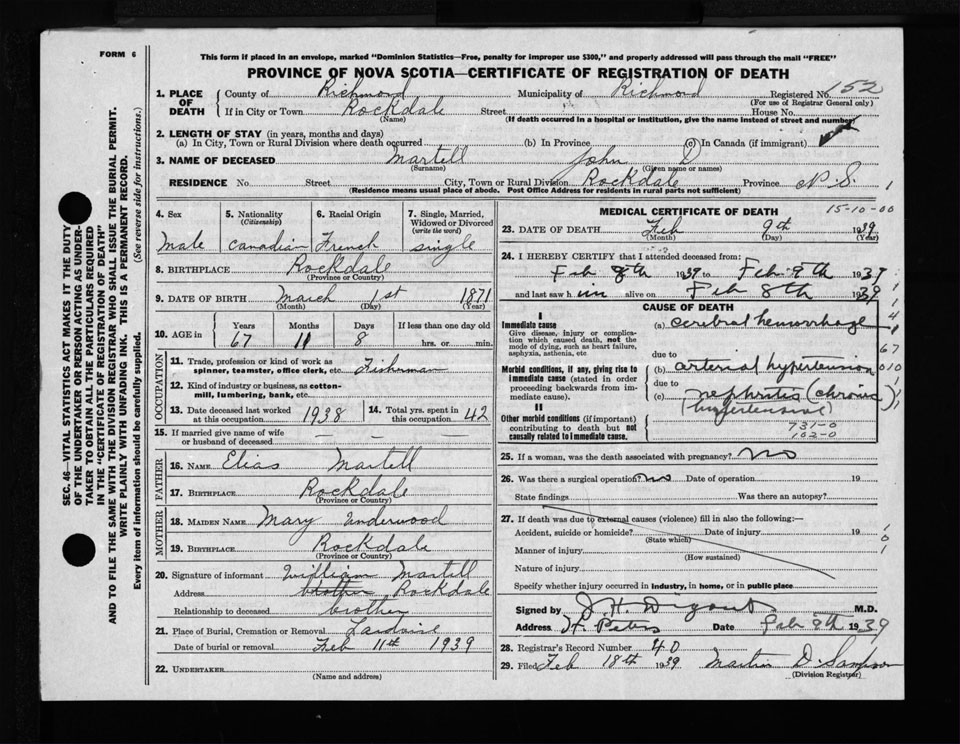 FORM 6
This form if placed in an envelope, marked "Dominion Statistics—Free, penalty for improper use $300," and properly addressed will pass through the mail "FREE"
PROVINCE OF NOVA SCOTIA—CERTIFICATE OF REGISTRATION OF DEATH
1. PLACE OF DEATH
County of Richmond Municipality of Richmond Registered No. 152
(For use of Registrar General only)
If in City or Town Rockdale Street House No.
(Name) (If death occurred in a hospital or institution, give the name instead of street and number)
2. LENGTH OF STAY (in years, months and days)
(a) In City, Town or Rural Division where death occurred (b) In Province (c) In Canada (if immigrant)
3. NAME OF DECEASED Martell John D
(Surname) (Given name or names)
RESIDENCE No. Street City, Town or Rural Division Rockdale Province N.S. 1
(Residence means usual place of abode. Post Office Address for residents in rural parts not sufficient)
4. Sex Male
5. Nationality (Citizenship) Canadian
6. Racial Origin French
7. Single, Married, Widowed or Divorced (write the word) single
8. BIRTHPLACE Rockdale
(Province or Country)
9. DATE OF BIRTH March 1st 1871
(Month) (Day) (Year)
10. AGE in Years 67 Months 11 Days 8 If less than one day old hrs. or min.
OCCUPATION
11. Trade, profession or kind of work as spinner, teamster, office clerk, etc. Fisherman
12. Kind of industry or business, as cotton-mill, lumbering, bank, etc.
13. Date deceased last worked at this occupation 1938
14. Total yrs. spent in this occupation 42
15. If married give name of wife or husband of deceased — — — —
FATHER
16. NAME Elias Martell
17. BIRTHPLACE Rockdale
(Province or Country)
MOTHER
18. MAIDEN NAME Mary Underwood
19. BIRTHPLACE Rockdale
(Province or Country)
20. Signature of informant William Martell
Address brother Rockdale
Relationship to deceased brother
21. Place of Burial, Cremation or Removal
Date of burial or removal Feb 11th 1939
22. UNDERTAKER
(Name and address)
MEDICAL CERTIFICATE OF DEATH 15-10-00
23. DATE OF DEATH Feb 9th 1939
(Month) (Day) (Year)
24. I HEREBY CERTIFY that I attended deceased from:
Feb 8th 1939 to Feb 8th 1939
and last saw him alive on Feb 8th 1939
CAUSE OF DEATH
I
Immediate cause
Give disease, injury or complication which caused death, not the mode of dying, such as heart failure, asphyxia, asthenia, etc
(a) cerebral hemorrhage
due to
Morbid conditions, if any, giving rise to immediate cause (stated in order proceeding backwards from immediate cause).
(b) arterial hypertension
due to
(c) nephritis (chronic)
(hypertensial)
II
Other morbid conditions (if important) contributing to death but not causally related to immediate cause.
731-0
102-0
25. If a woman, was the death associated with pregnancy? no
26. Was there a surgical operation? no Date of operation 19
State findings Was there an autopsy?
27. If death was due to external causes (violence) fill in also the following:—
Accident, suicide or homicide? Date of injury 19
(State which)
Manner of injury
(How sustained)
Nature of injury
Specify whether injury occurred in industry, in home, or in public place
Signed by M.D.
Address St. Peters Date Feb 8th 1939
28. Registrar's Record Number 40
29. Filed Feb 18th 1939 Martin D. Sampson
(Division Registrar)
SEC. 46—VITAL STATISTICS ACT MAKES IT THE DUTY
OF THE UNDERTAKER OR PERSON ACTING AS UNDER-
TAKER TO OBTAIN ALL THE PARTICULARS REQUIRED
IN THE "CERTIFICATE OF REGISTRATION OF DEATH"
AND TO FILE THE SAME WITH THE DIVISION REGISTRAR WHO SHALL ISSUE THE BURIAL PERMIT.
WRITE PLAINLY WITH UNFADING INK. THIS IS A PERMANENT RECORD.
Every item of information should be carefully supplied. (See reverse side for instructions.)